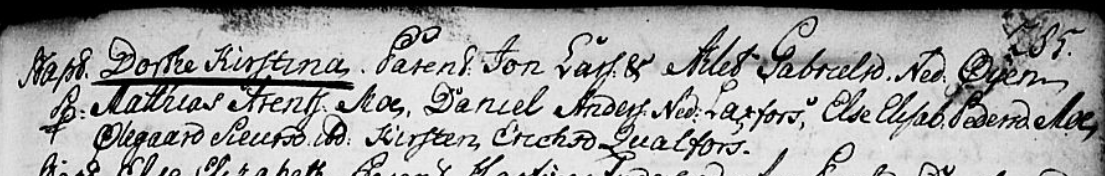 285.
Bapt. Dorthe Kirstina. Parent. Jon Lars. & Alet Gabrielsd. Ned. Øyen
T: Mathias Arents. Moe, Daniel Anders. Ned. Laxfors, Else Elisab. Pedersd. Moe,
Olegaard Sieursd. ibd. Kirsten Erichsd. Qualfors.
Elisabeth Parent